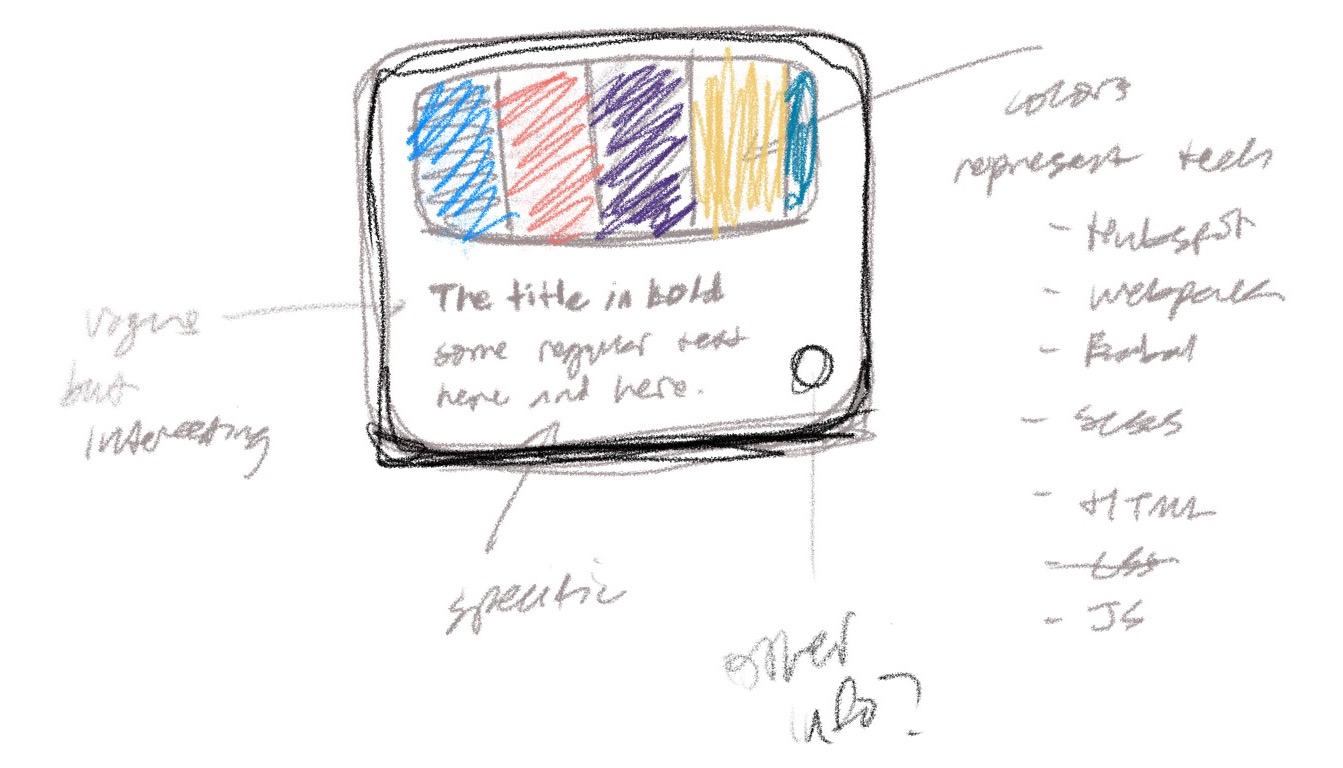 The title in bold
some regular text
here and here.
vague
but
interesting
specific
other
info?
colors
represent tech
- Hubspot
- webpack
- Babel
- SCSS
- HTML
- CSS
- JS